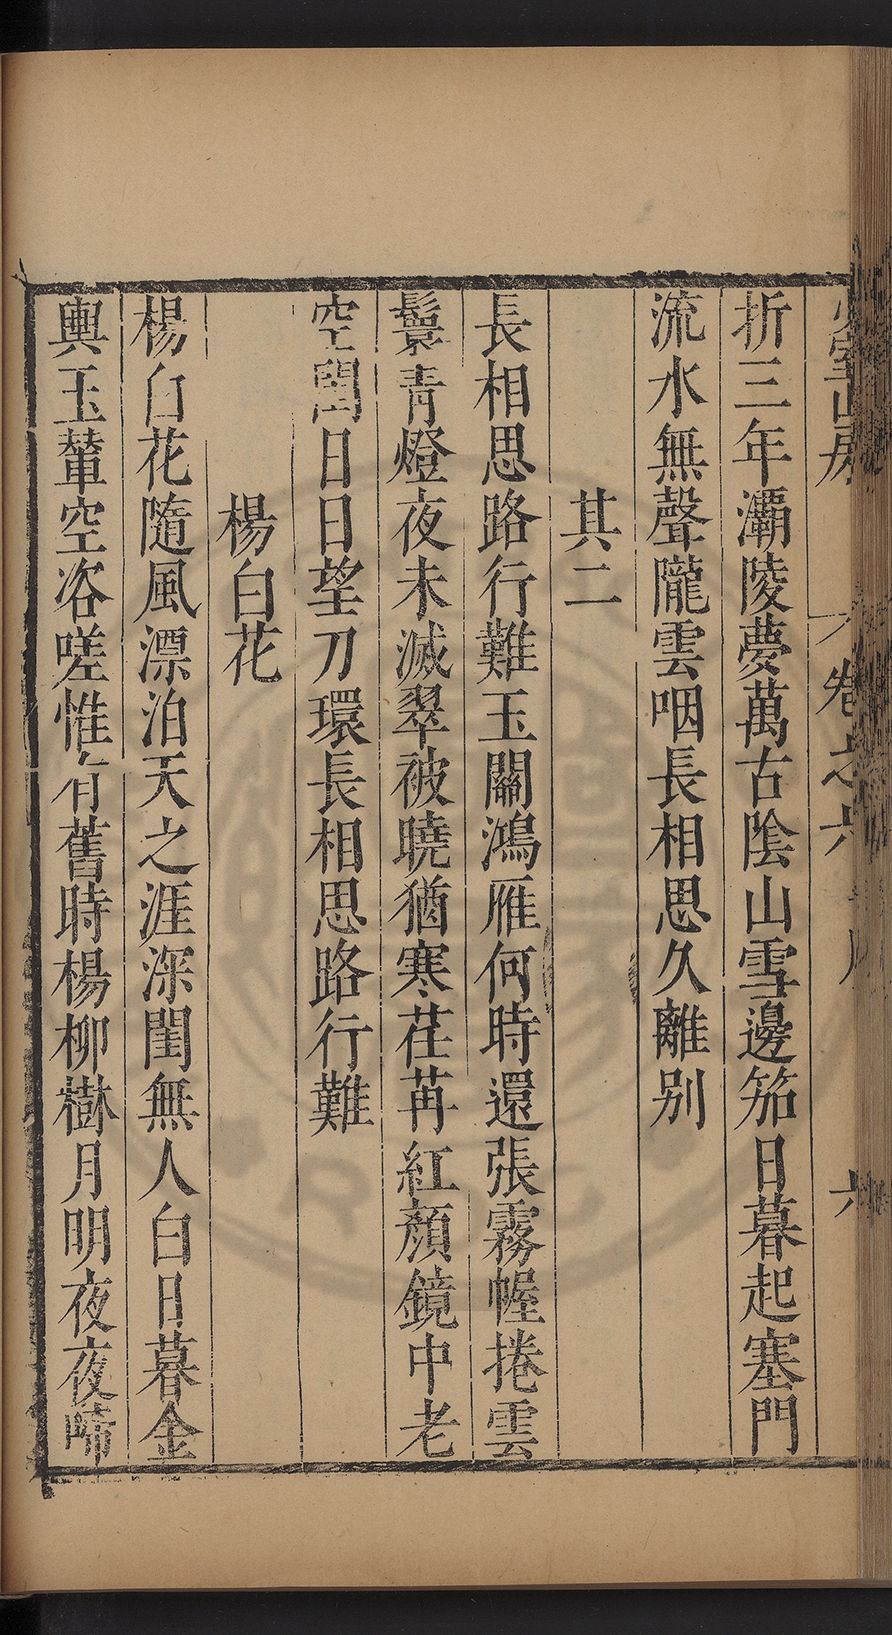 少室山房
卷之六
六
折三年灞陵夢萬古陰山雪邊笳日暮起塞門
流水無聲隴雲咽長相思久離别
其二
長相思路行難玉關鴻雁何時還張霧幄捲雲
鬟青燈夜未滅翠被曉猶寒荏苒紅顏鏡中老
空閨日日望刀環長相思路行難
楊白花
楊白花隨風漂泊天之涯深閨無人白日暮金
輿玉輦空咨嗟惟有舊時楊柳樹月明夜夜啼